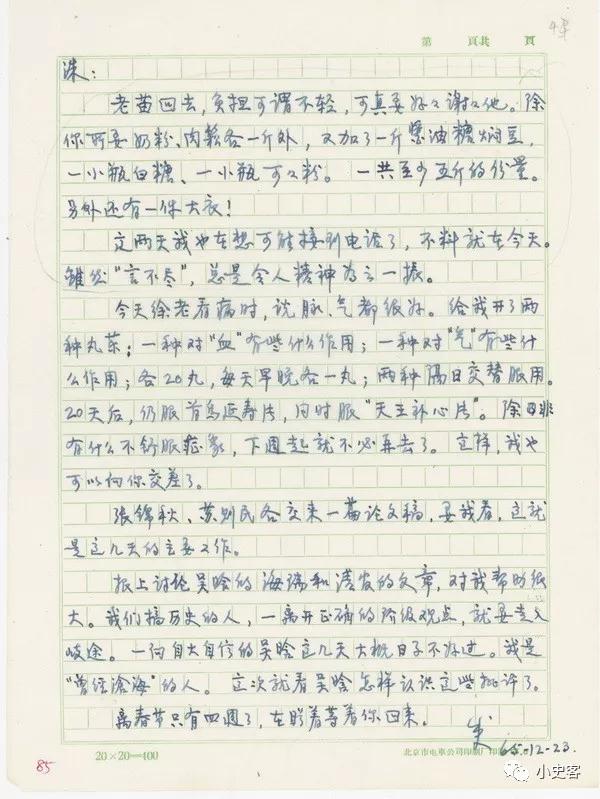 第 頁共 頁
洙：
老苗回去，负担可谓不轻，可真要好々谢々他。除
你所要奶粉、肉松各一斤外，又加了一斤酱油糖焖豆，
一小瓶白糖、一小瓶可々粉。一共至少五斤的份量。
另外还有一件大衣！
这两天我也在想可能接到电话了，不料就在今天。
虽然“言不尽”，总是令人精神为之一振。
今天徐老看病时，说脉、气都很好。给我开了两
种丸药；一种对“血”有些什么作用；一种对“气”有些什
么作用；各20丸，每天早晚各一丸；两种隔日交替服用。
20天后，仍服首乌延寿片，同时服“天王补心片”。除非
有什么不舒服症象，下週起就不必再去了。这样，我也
可以向你交差了。
张锦秋、苏则民各交来一篇论文稿，要我看，这就
是这几天的主要工作。
报上讨论吴晗的海瑞和清官的文章，对我帮助很
大。我们搞历史的人，一离开正确的阶级观点，就要走入
歧途。一向自大自信的吴晗这几天大概日子不好过。我是
“曾经沧海”的人。这次就看吴晗怎样认识这些批评了。
离春节只有四週了，在盼着等着你回来。
65-12-23.
85
20×20=400
北京市电车公司印刷厂印
小史客